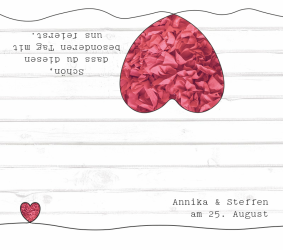 Schön,
dass du diesen
besonderen Tag mit
uns feierst.
Annika & Steffen
am 25. August